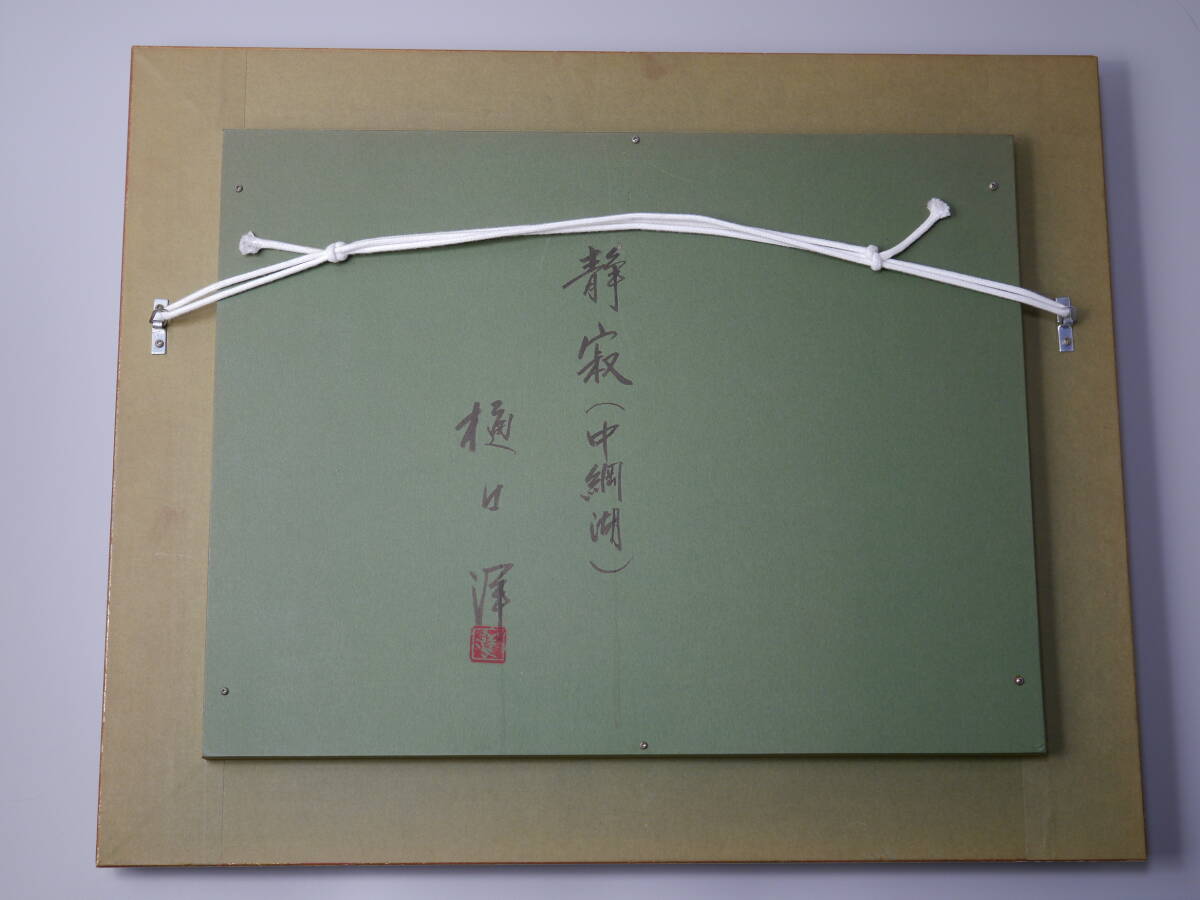 静寂（中綱湖）
樋口洋